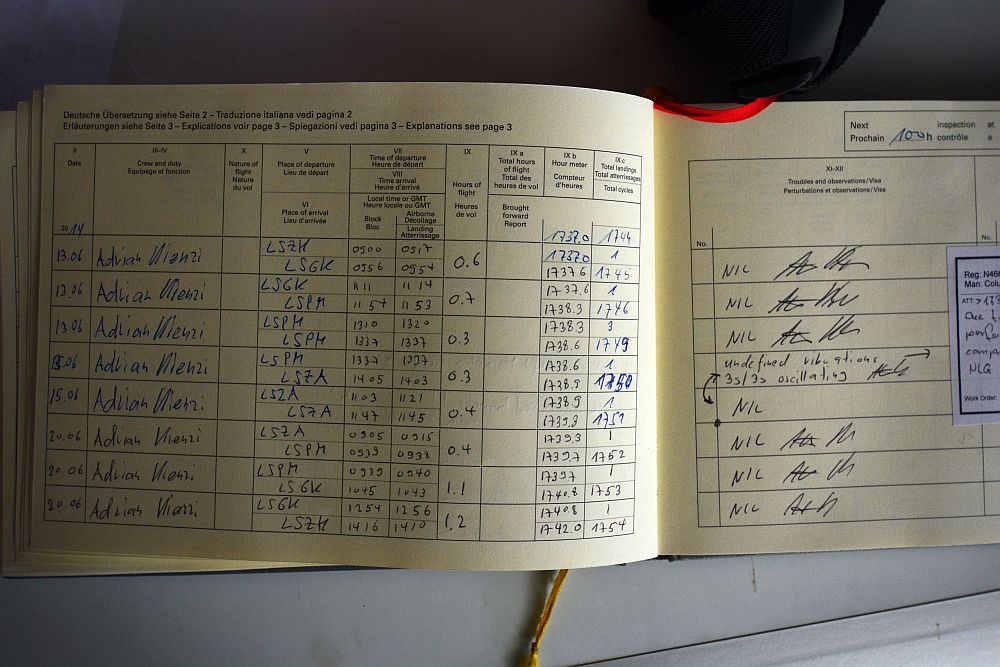 Deutsche Übersetzung siehe Seite 2 – Traduzione italiana vedi pagina 2
Erläuterungen siehe Seite 3 – Explications voir page 3 – Spiegazioni vedi pagina 3 – Explanations see page 3
II Date
III-IV Crew and duty Equipage et fonction
X Nature of flight Nature du vol
V Place of departure Lieu de départ
VI Place of arrival Lieu d'arrivée
VII Time of departure Heure de départ
VIII Time arrival Heure d'arrivé
Local time or GMT Heure locale ou GMT
Block Bloc
Airborne Décollage
Landing Atterrissage
IX Hours of flight Heures de vol
IX a Total hours of flight Total des heures de vol
Brought forward Report
IX b Hour meter Compteur d'heures
IX c Total landings Total atterrissages
Total cycles
2014 1737.0 1744
13.06 Adrian LSZH 0900 0917 0.6 1737.0 1
LSGK 0956 0954 1737.6 1745
13.06 Adrian LSGK 1111 1114 0.7 1737.6 1
LSPM 1157 1153 1738.3 1746
13.06 Adrian LSPM 1310 1320 0.3 1738.3 3
LSPM 1337 1337 1738.6 1749
Adrian LSPM 1337 1337 0.3 1738.6 1
LSZA 1405 1403 1738.9 1750
15.06 Adrian LSZA 1103 1121 0.4 1738.9 1
LSZA 1147 1145 1739.3 1751
20.06 Adrian LSZA 0905 0915 0.4 1739.3 1
LSPM 0939 0938 1739.7 1752
20.06 Adrian LSPM 0939 0940 1.1 1739.7
LSGK 1045 1043 1740.8 1753
20.06 Adrian LSGK 1254 1256 1.2 1740.8 1
LSZH 1416 1410 1742.0 1754
Next inspection at
Prochain 100h contrôle à
XI-XII
Troubles and observations/Visa
Perturbations et observations/Visa
No. No.
NIL
NIL
NIL
undefined vibrations
3s/3s oscillating
NIL
NIL
NIL
NIL
Reg: N46
Man: Colu
Due
NLQ
Work Order: